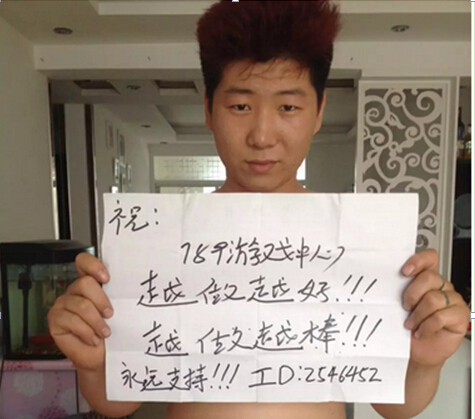 祝:
759游戏中心
越做越好!!!
越做越棒!!!
永远支持!!! ID:2546452